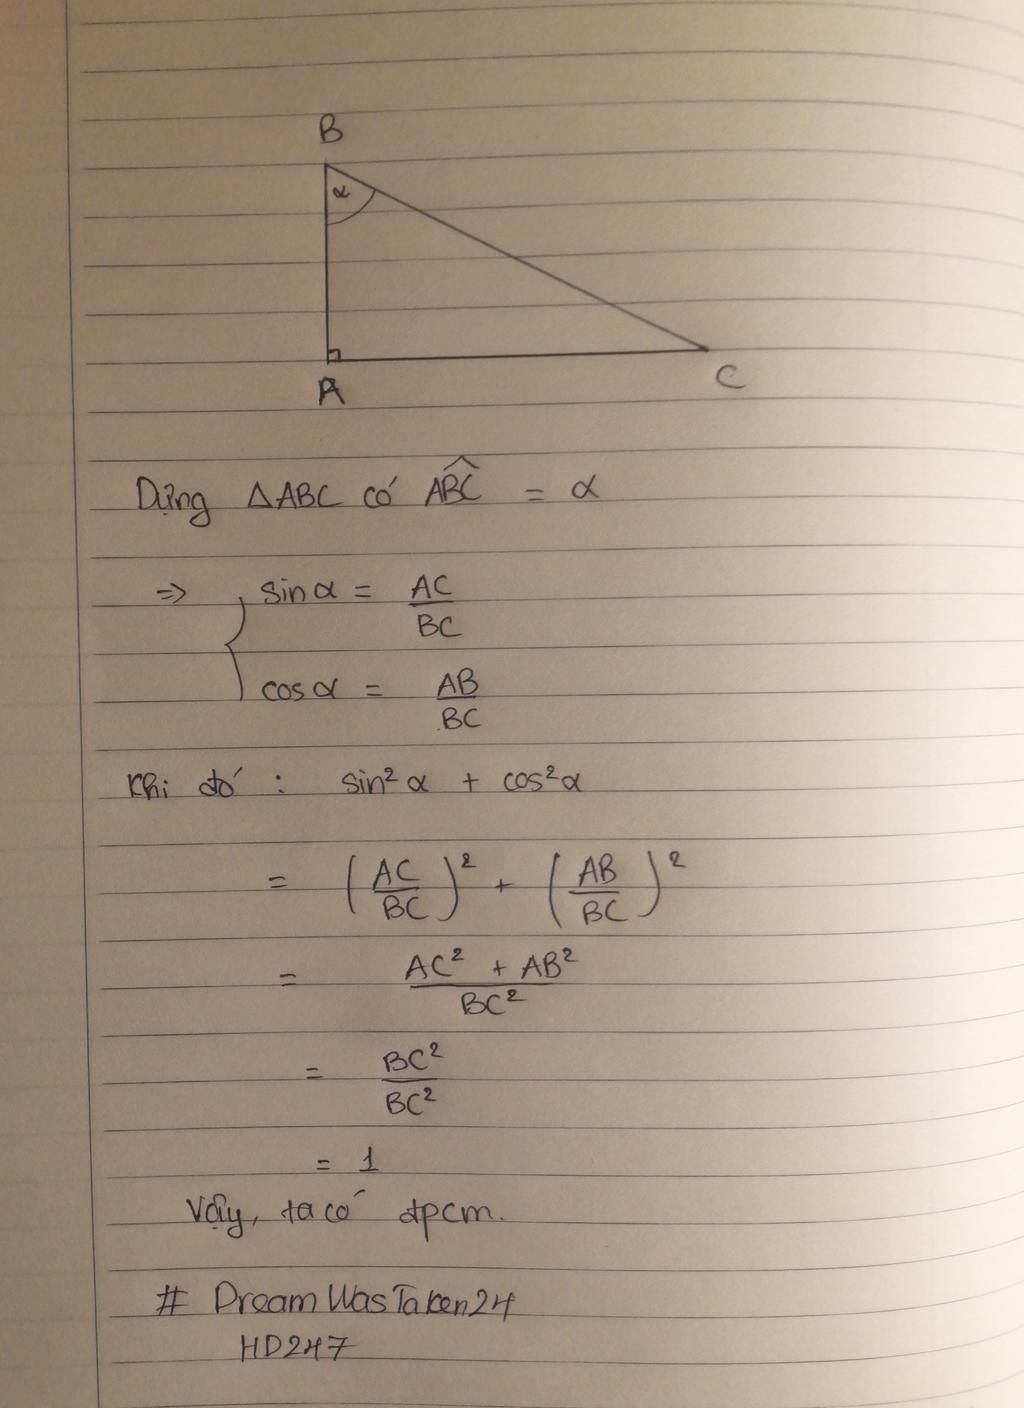 B
α
A
C
Dựng ΔABC có \widehat{ABC} = α
=> { sin α = AC/BC
cos α = AB/BC
Khi đó : sin²α + cos²α
= (AC/BC)² + (AB/BC)²
= (AC² + AB²)/BC²
= BC²/BC²
= 1
Vậy, ta có đpcm.
# DreamWasTaken24
HD247